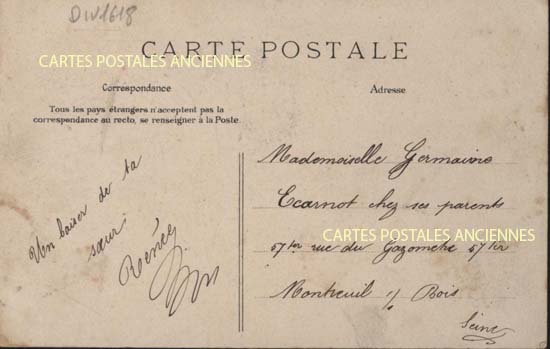 DIV1618
CARTE POSTALE
CARTES POSTALES ANCIENNES
Correspondance
Tous les pays étrangers n'acceptent pas la
correspondance au recto, se renseigner à la Poste.
Un baiser de ta
sœur
Renée
Adresse
Mademoiselle Germaine
Ecarnot chez ses parents
CARTES POSTALES ANCIENNES
57 ter rue du Gazomètre 57 ter
Montreuil s/ Bois
Seine